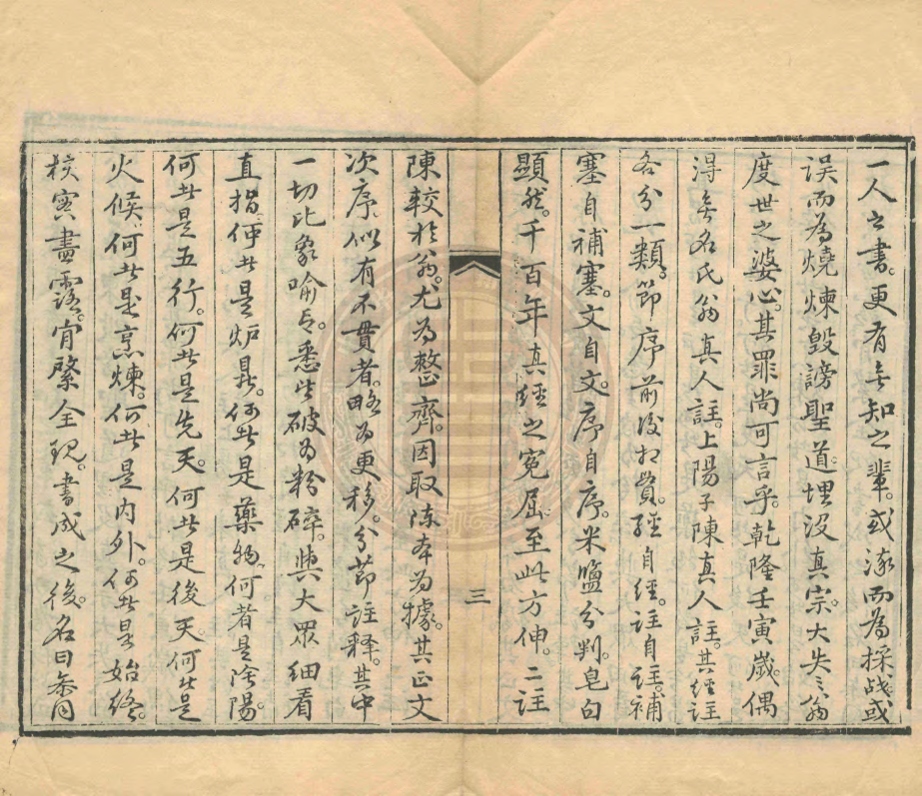 一人之書。更有無知之輩。或流而為採战。或
误而為燒煉。毀謗聖道。埋没真宗。大失仙翁
度世之婆心。其罪尚可言乎。乾隆壬寅歲。偶
淂無名氏翁真人註。上陽子陳真人註。其經註
各分一類。節序前後相貫。經自經。註自註。補
塞自補塞。文自文。序自序。米鹽分判。皂白
顯然。千百年真經之寃屈至此方伸。二註
三
陳較於翁。尤為整齊。因取陈本为據。其正文
次序。似有不貫者。略为更移。分節註釋。其中
一切比象喻言。悉皆破为粉碎。與大眾細看
直指。何者是炉鼎。何者是藥物。何者是陰陽。
何者是五行。何者是先天。何者是後天。何者是
火候。何者是烹煉。何者是内外。何者是始終。
核实盡露。肯綮全現。書成之後。名曰参同